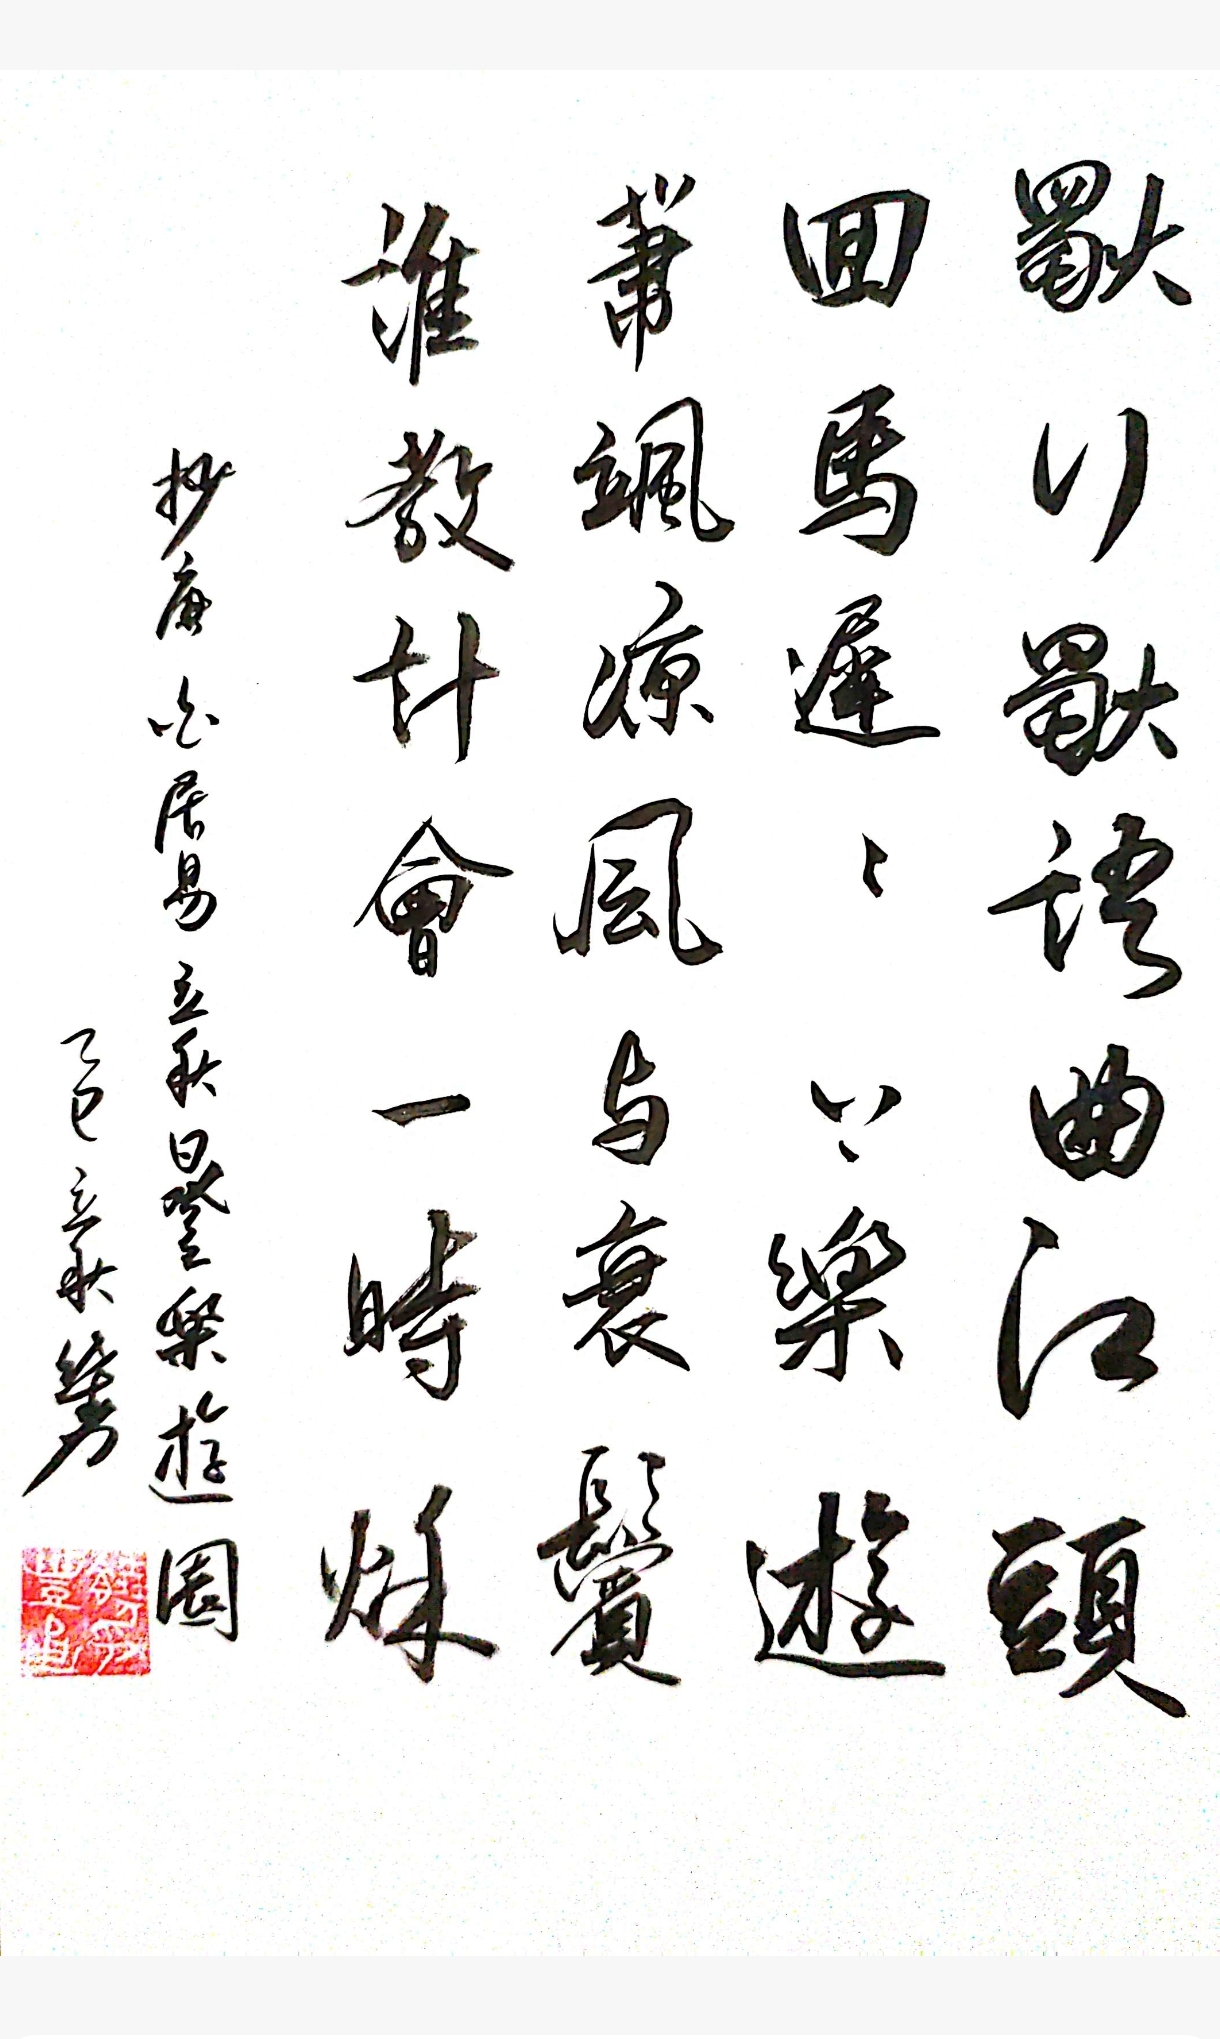 獨行獨語曲江頭
回馬遲〻〻樂遊
蕭颯涼風与衰鬢
誰教計會一時秌
抄唐白居易立秋日登樂遊園
乙巳立秋